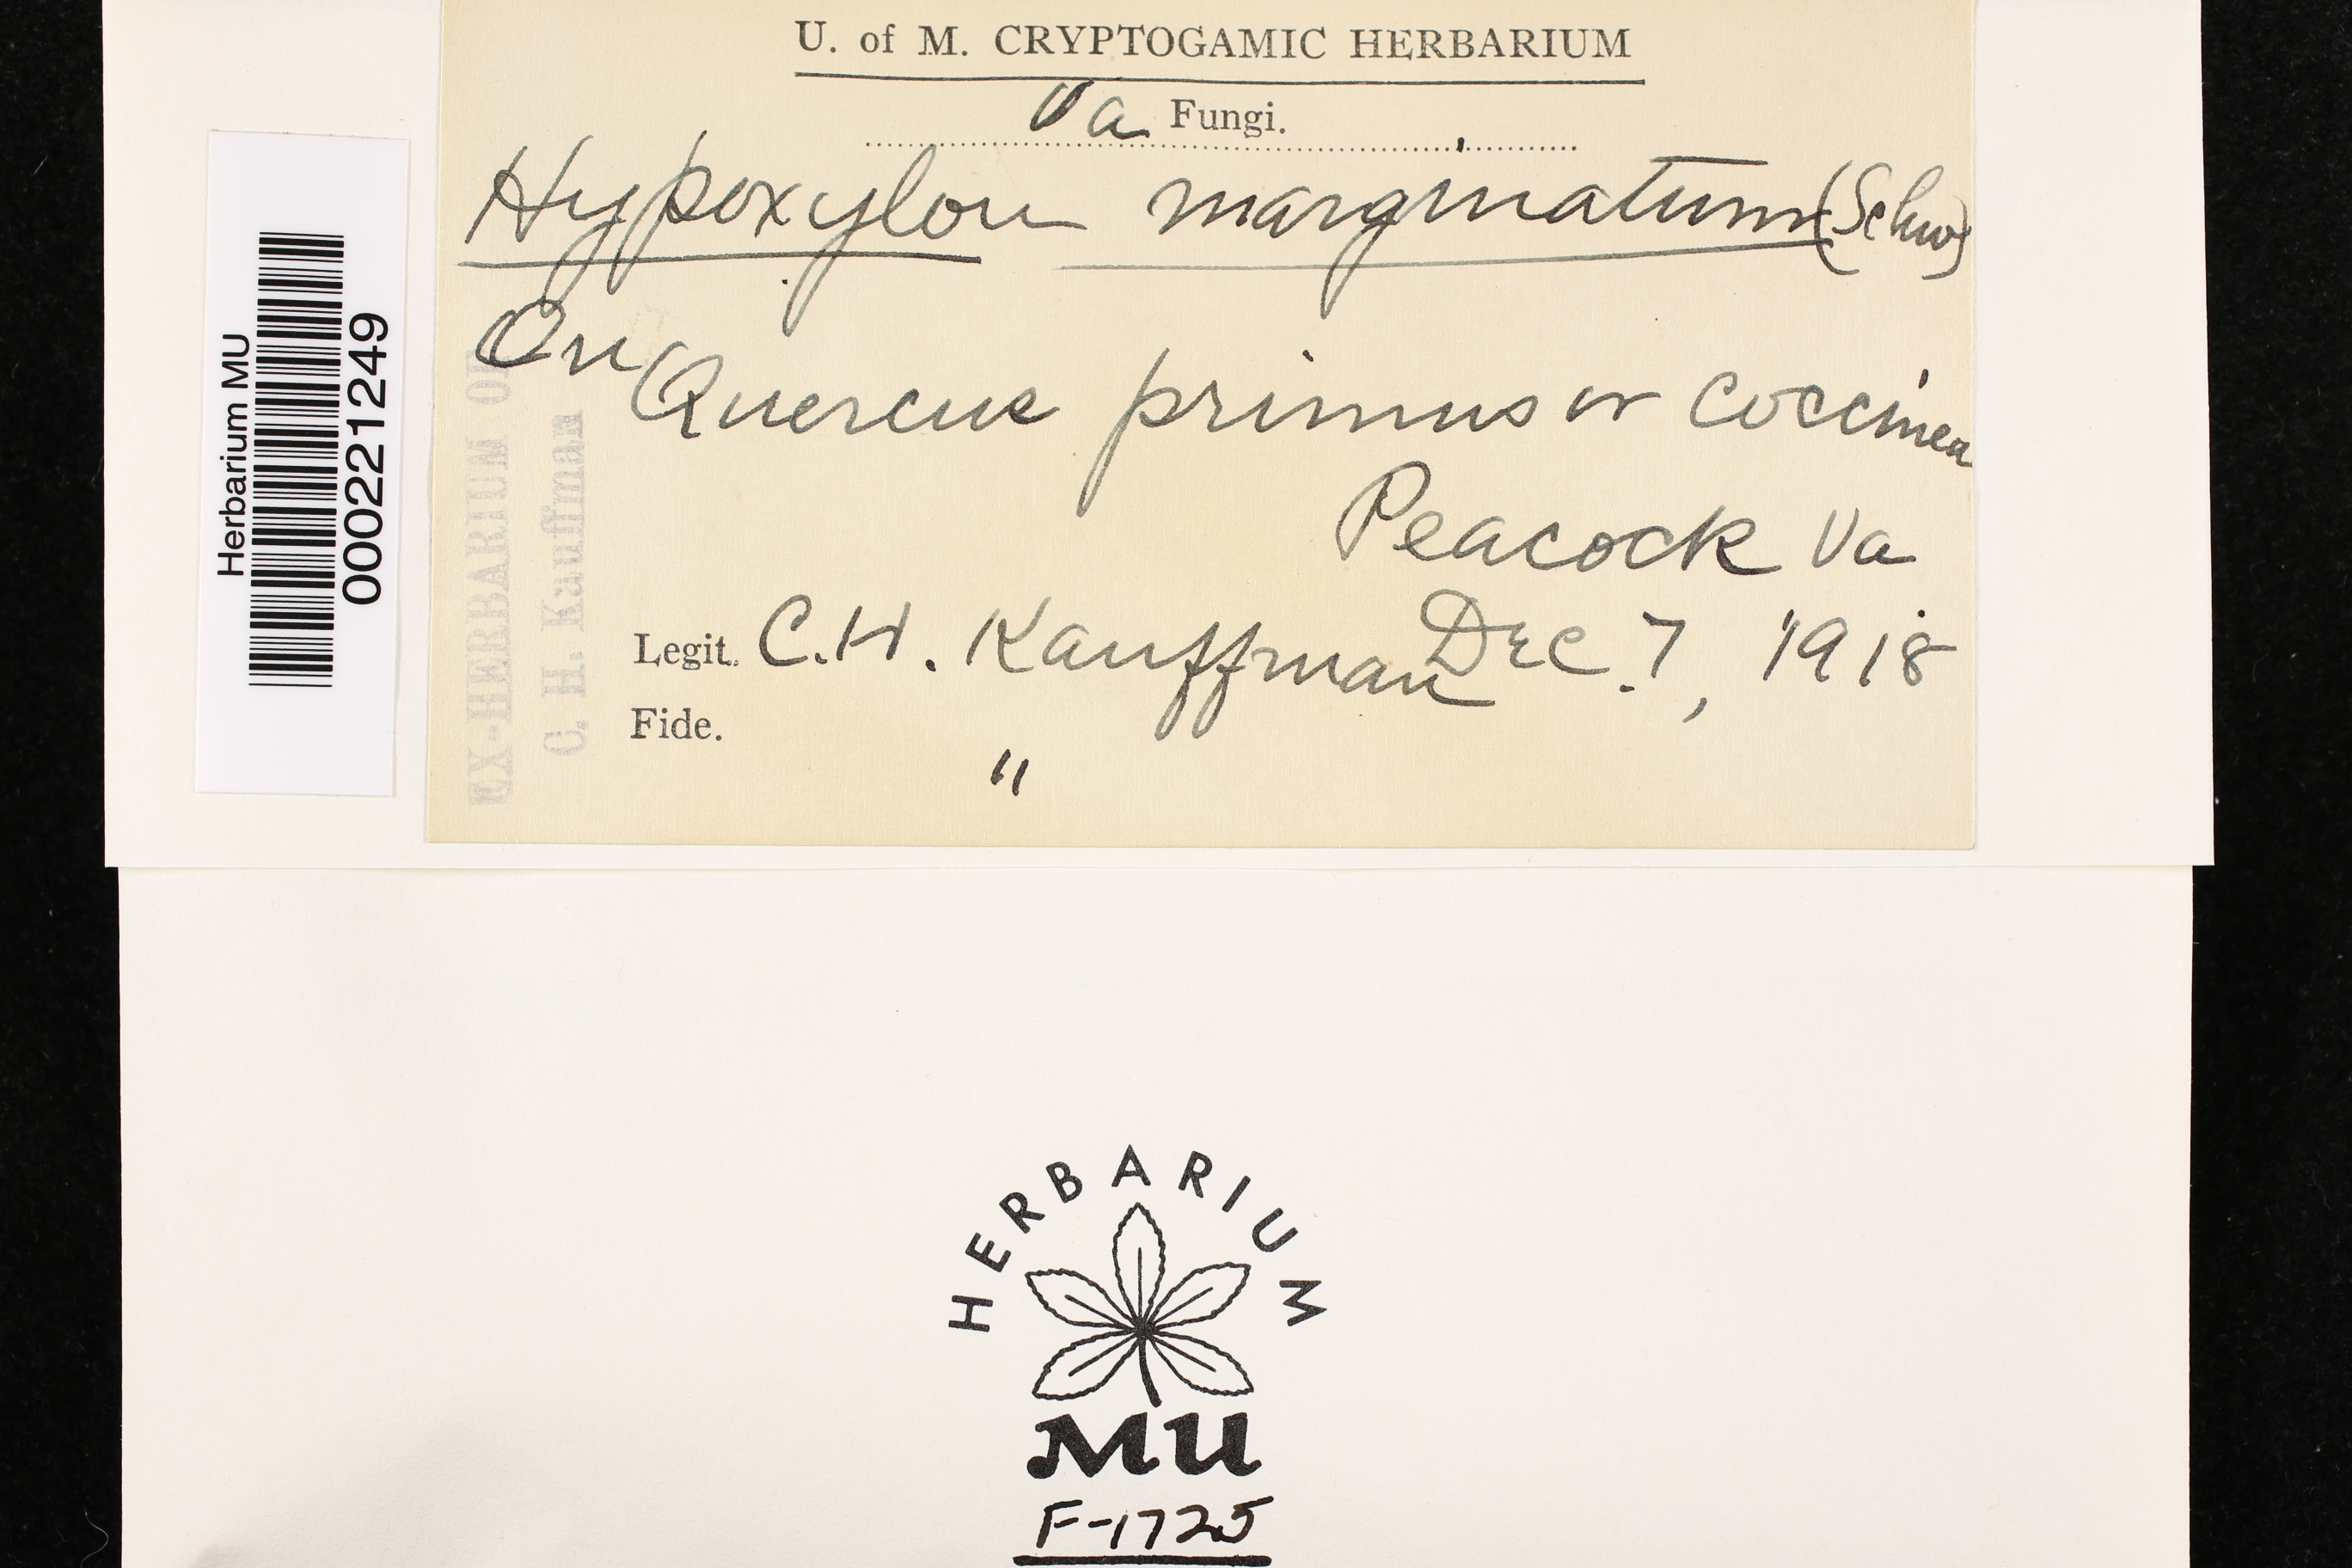 U. of M. CRYPTOGAMIC HERBARIUM
Va Fungi.
Hypoxylon marginatum (Schw)
On
Quercus primus or coccinea
Peacock Va
Legit. C.H. Kauffman Dec. 7, 1918
Fide. "
EX-HERBARIUM OF
C. H. Kauffman
Herbarium MU
000221249
HERBARIUM
MU
F-1725